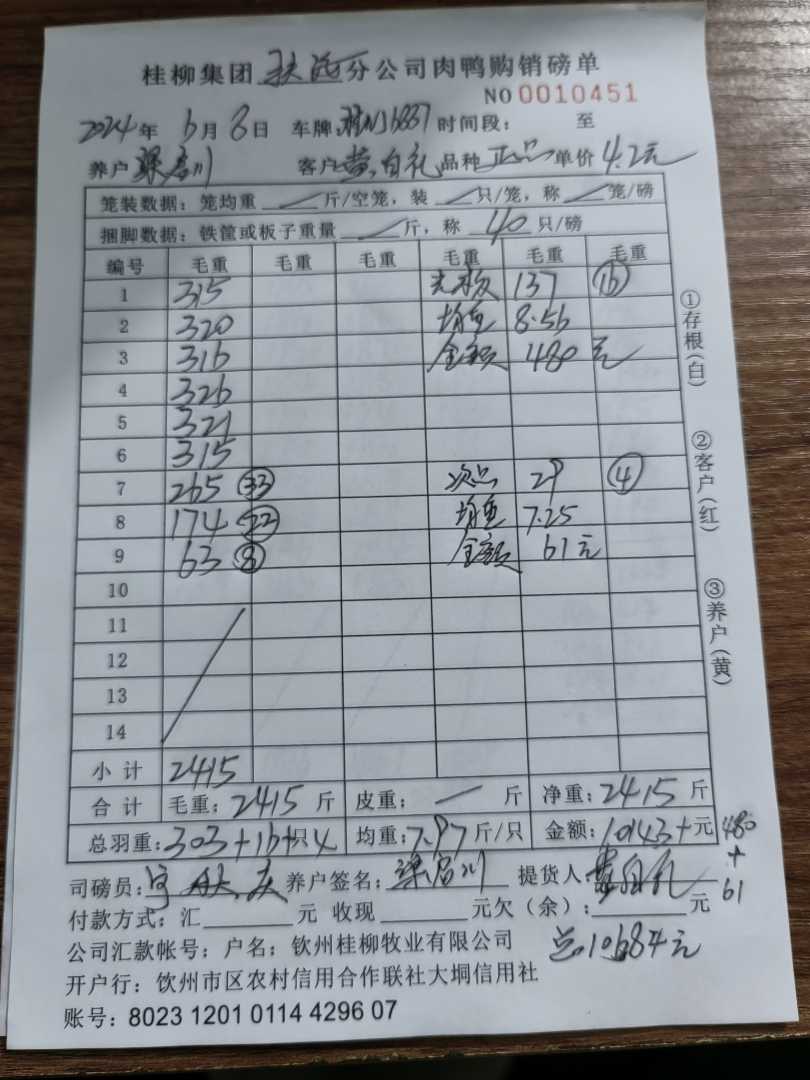 桂柳集团 分公司肉鸭购销磅单
NO 0010451
2024年 6月 8日 车牌: 6837 时间段: 至
养户 客户 黄 礼 品种 正品 单价 4.2元
笼装数据: 笼均重 斤/空笼, 装 只/笼, 称 笼/磅
捆脚数据: 铁筐或板子重量 斤, 称 40 只/磅
编号 毛重 毛重 毛重 毛重 毛重 毛重
1 315 137 16
2 320 均重 8.56
3 316 金额 480 元
4 326
5 321
6 315
7 265 33 次品 29 4
8 174 22 均重 7.25
9 63 8 金额 61元
10
11
12
13
14
小计 2415
合计 毛重: 2415 斤 皮重: 一 斤 净重: 2415 斤
总羽重: 303+16+只4 均重: 7.97斤/只 金额: 10143+元 480
+
61
司磅员: 养户签名: 提货人:
付款方式: 汇 元 收现 元欠(余): 元
公司汇款帐号: 户名: 钦州桂柳牧业有限公司 总10684元
开户行: 钦州市区农村信用合作联社大垌信用社
账号: 8023 1201 0114 4296 07
①存根(白)
②客户(红)
③养户(黄)